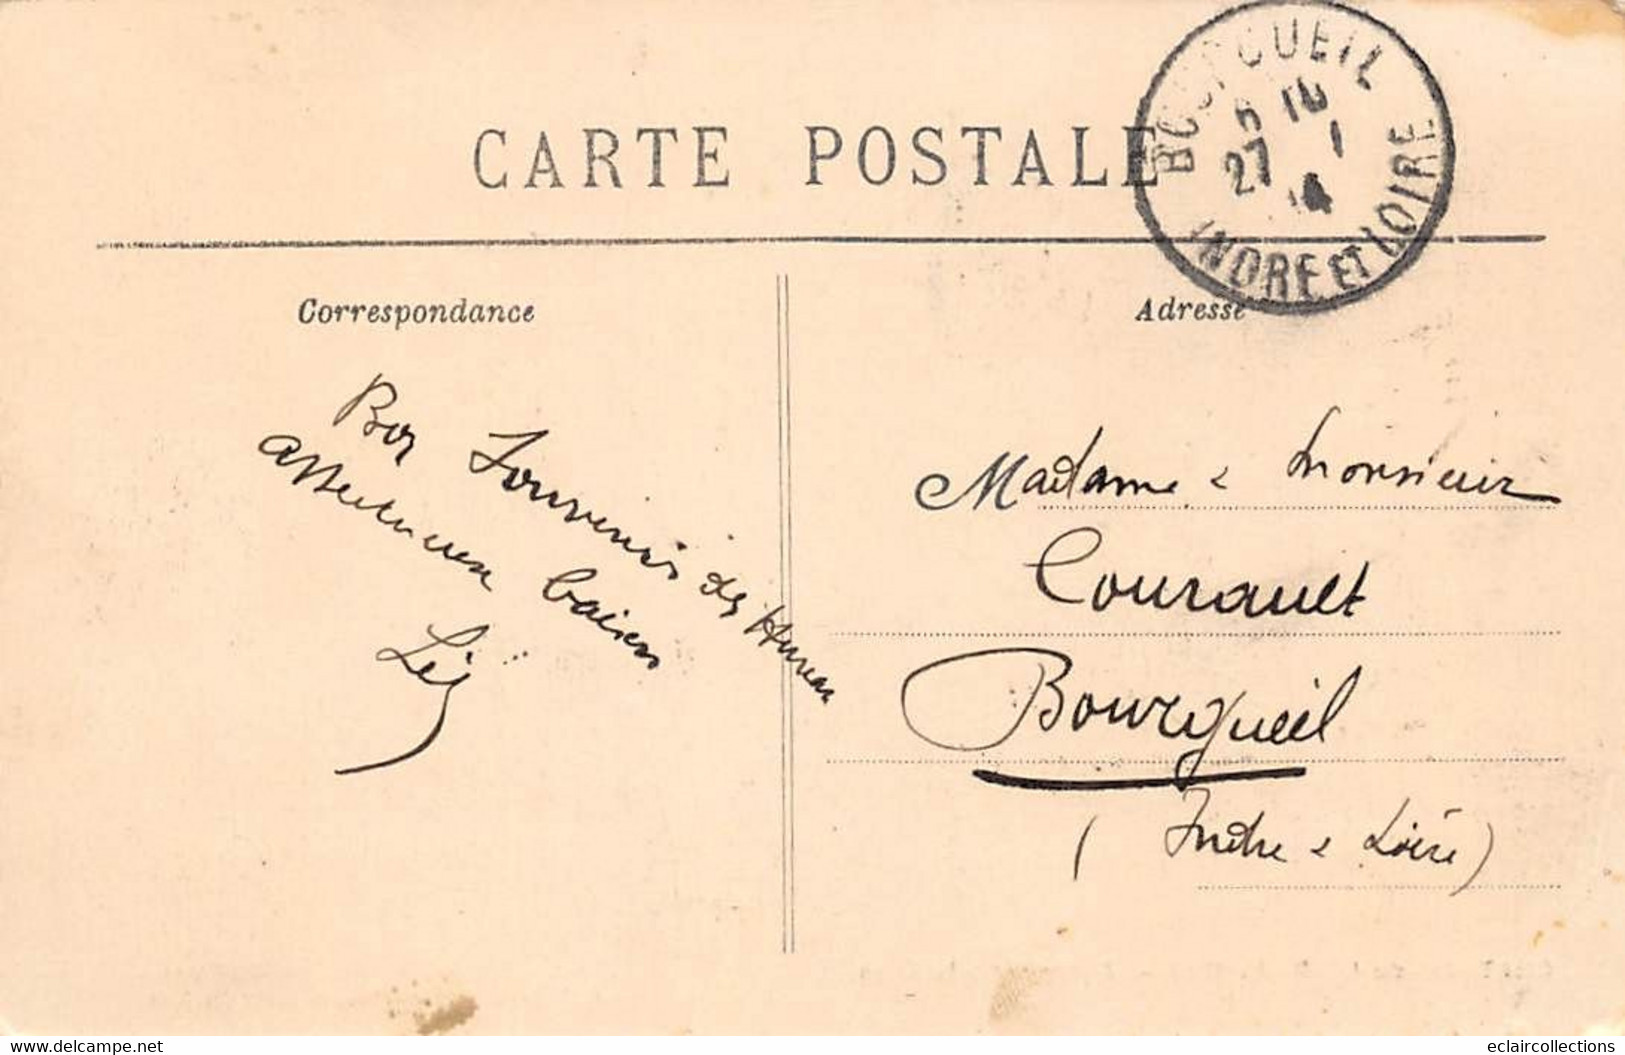 CARTE POSTALE
BOURGUEIL
10
27 1
14
INDRE ET LOIRE
Correspondance
Adresse
Bon Souvenir des
affectueux baisers
Madame & Monsieur
Courault
Bourgueil
(Indre & Loire)
www.delcampe.net
eclaircollections